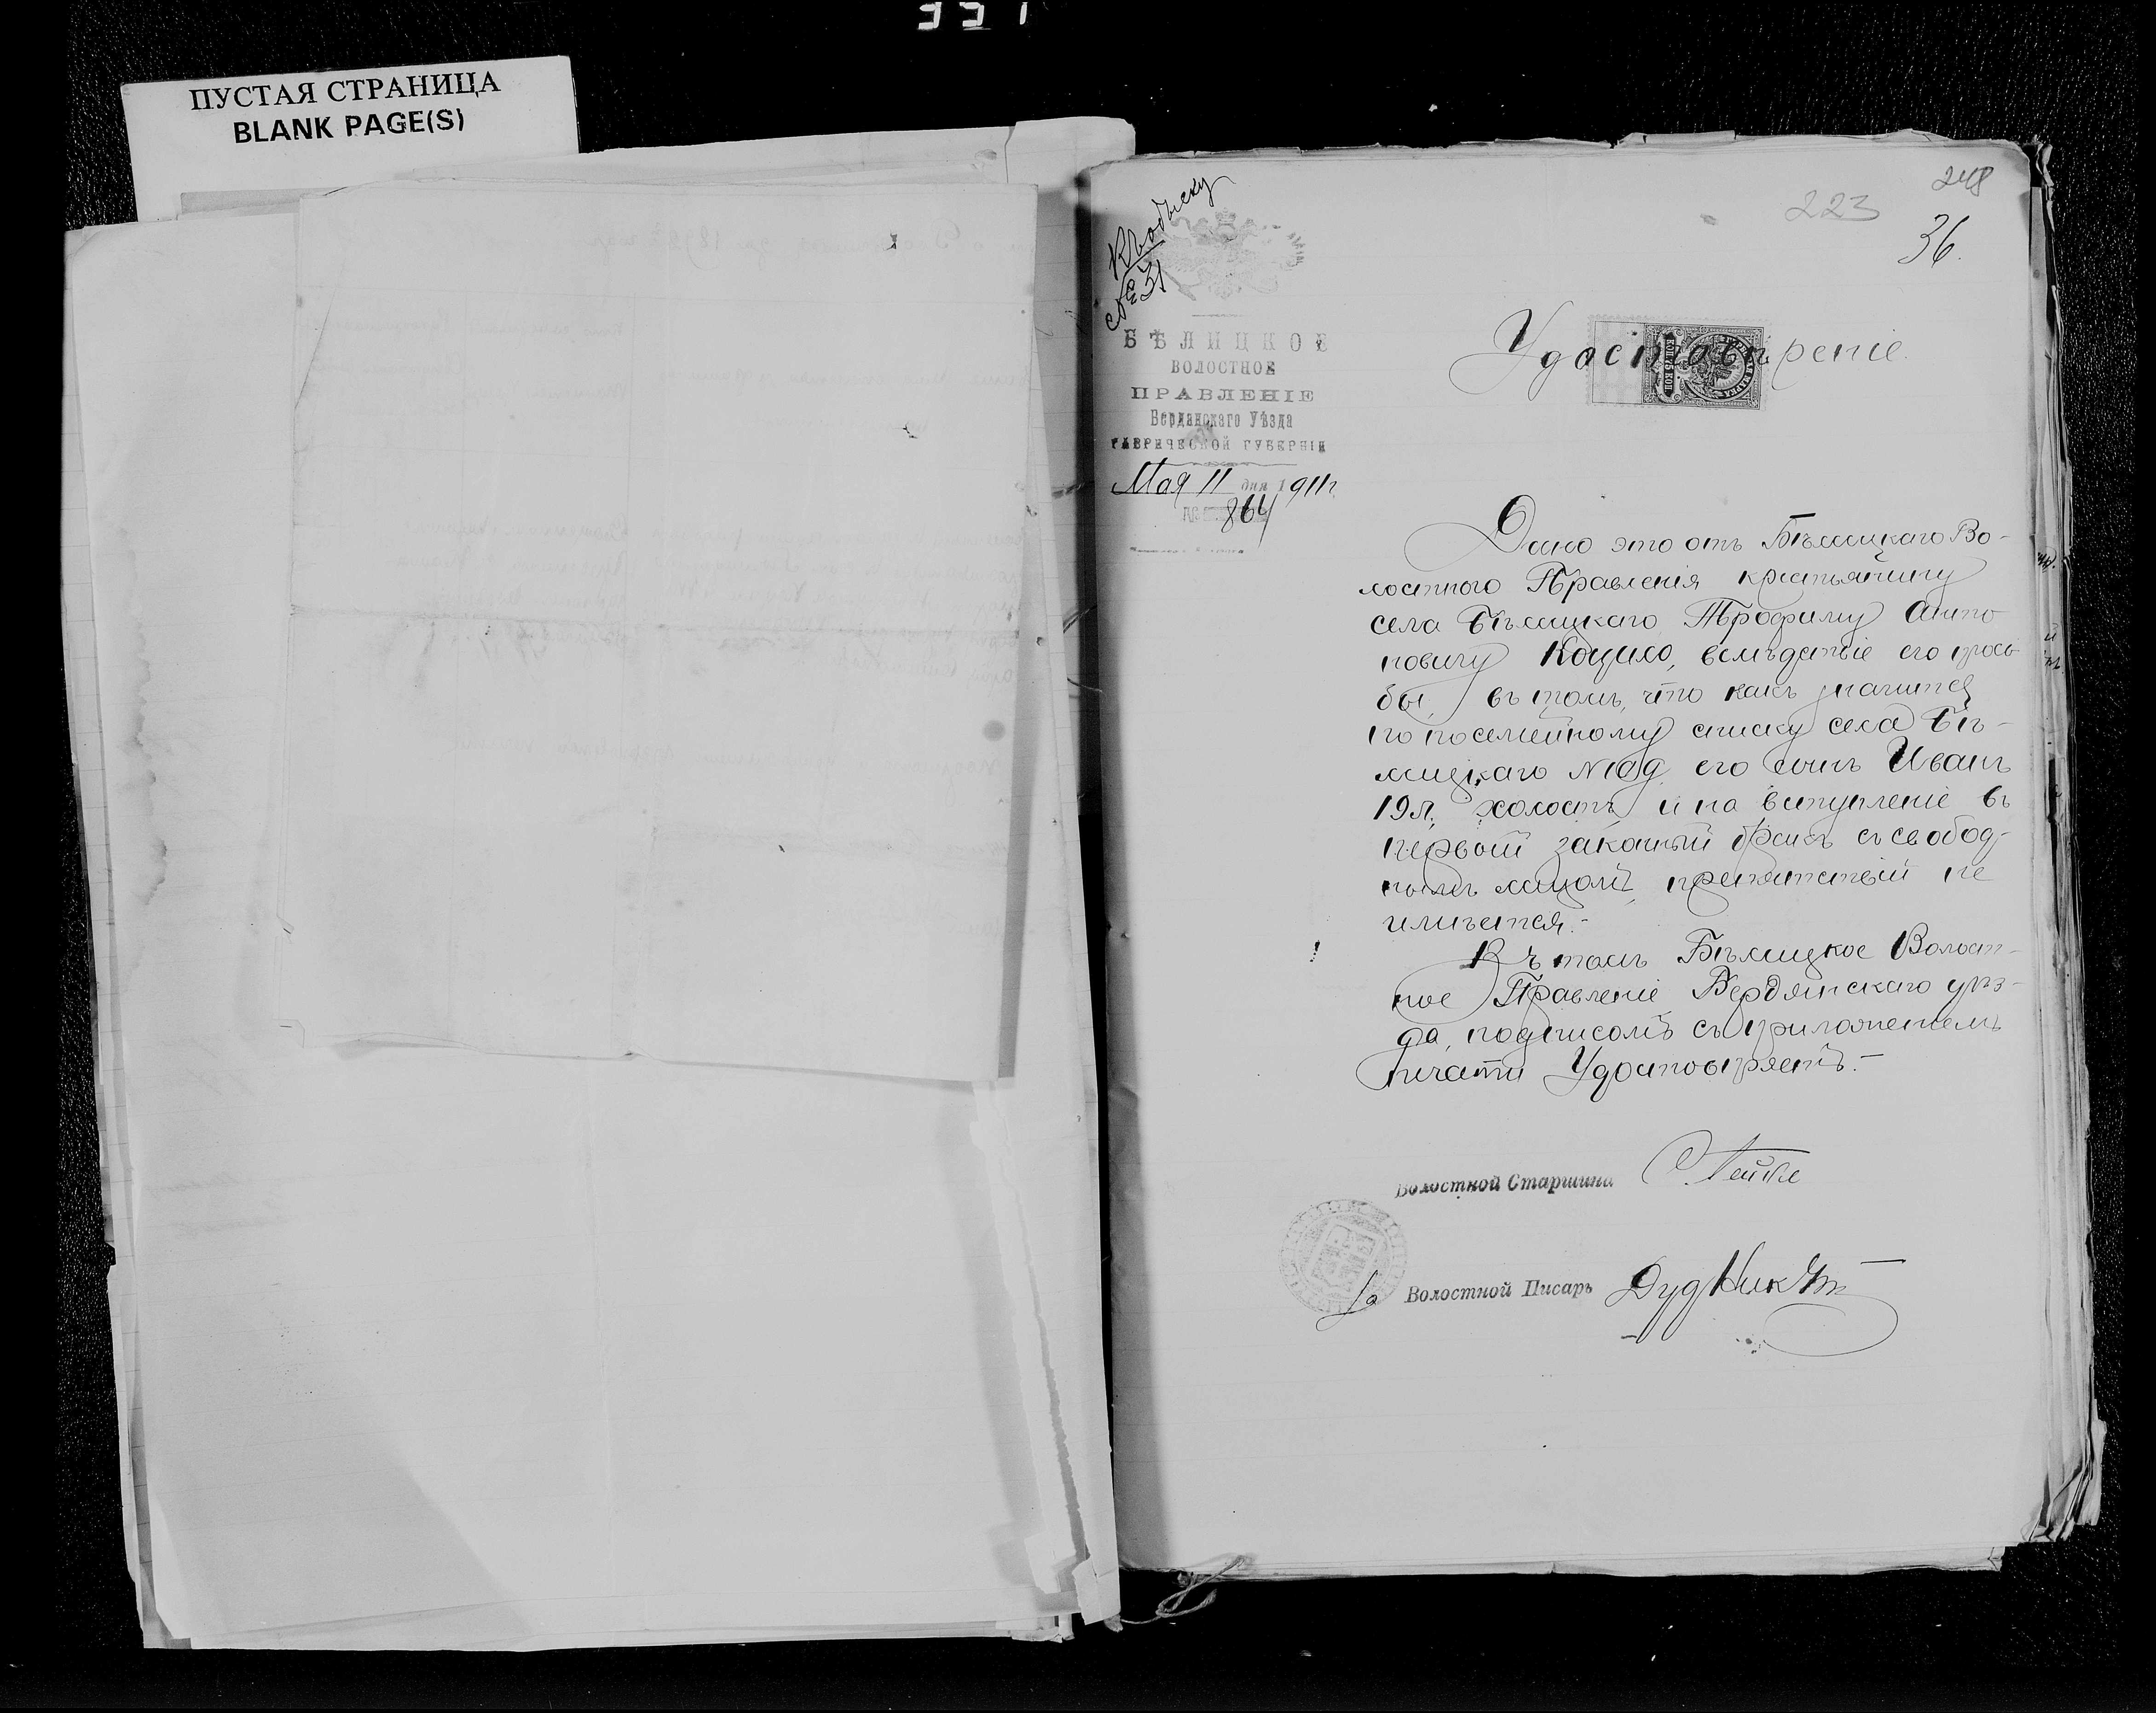 ПУСТАЯ СТРАНИЦА
BLANK PAGE(S)
248
223
36.
Къ обыску
№ 31
БѢЛИЦКОЕ
ВОЛОСТНОЕ
ПРАВЛЕНІЕ
Бердянскаго Уѣзда
ТАВРИЧЕСКОЙ ГУБЕРНІИ
Мая 11 дня 1911 г.
№ 864
Удостовѣреніе.
Дано это отъ Бѣлицкаго Во-
лостного Правленія крестьянину
села Бѣлицкаго Трофиму Анто
новичу Коцыло, вслѣдствіе его прось
бы, въ томъ, что какъ значится
по посемейному списку села Бѣ-
лицкаго № 109 его сынъ Иванъ
19 л. холостъ и на вступленіе въ
первый законый бракъ съ свобод-
нымъ лицомъ, препятствій не
имѣется.-
Въ томъ Бѣлицкое Волост-
ное Правленіе Бердянскаго уѣз-
да, подписомъ съ приложеніемъ
печати Удостовѣряетъ.-
Волостной Старшина
За Волостной Писарь Дудник